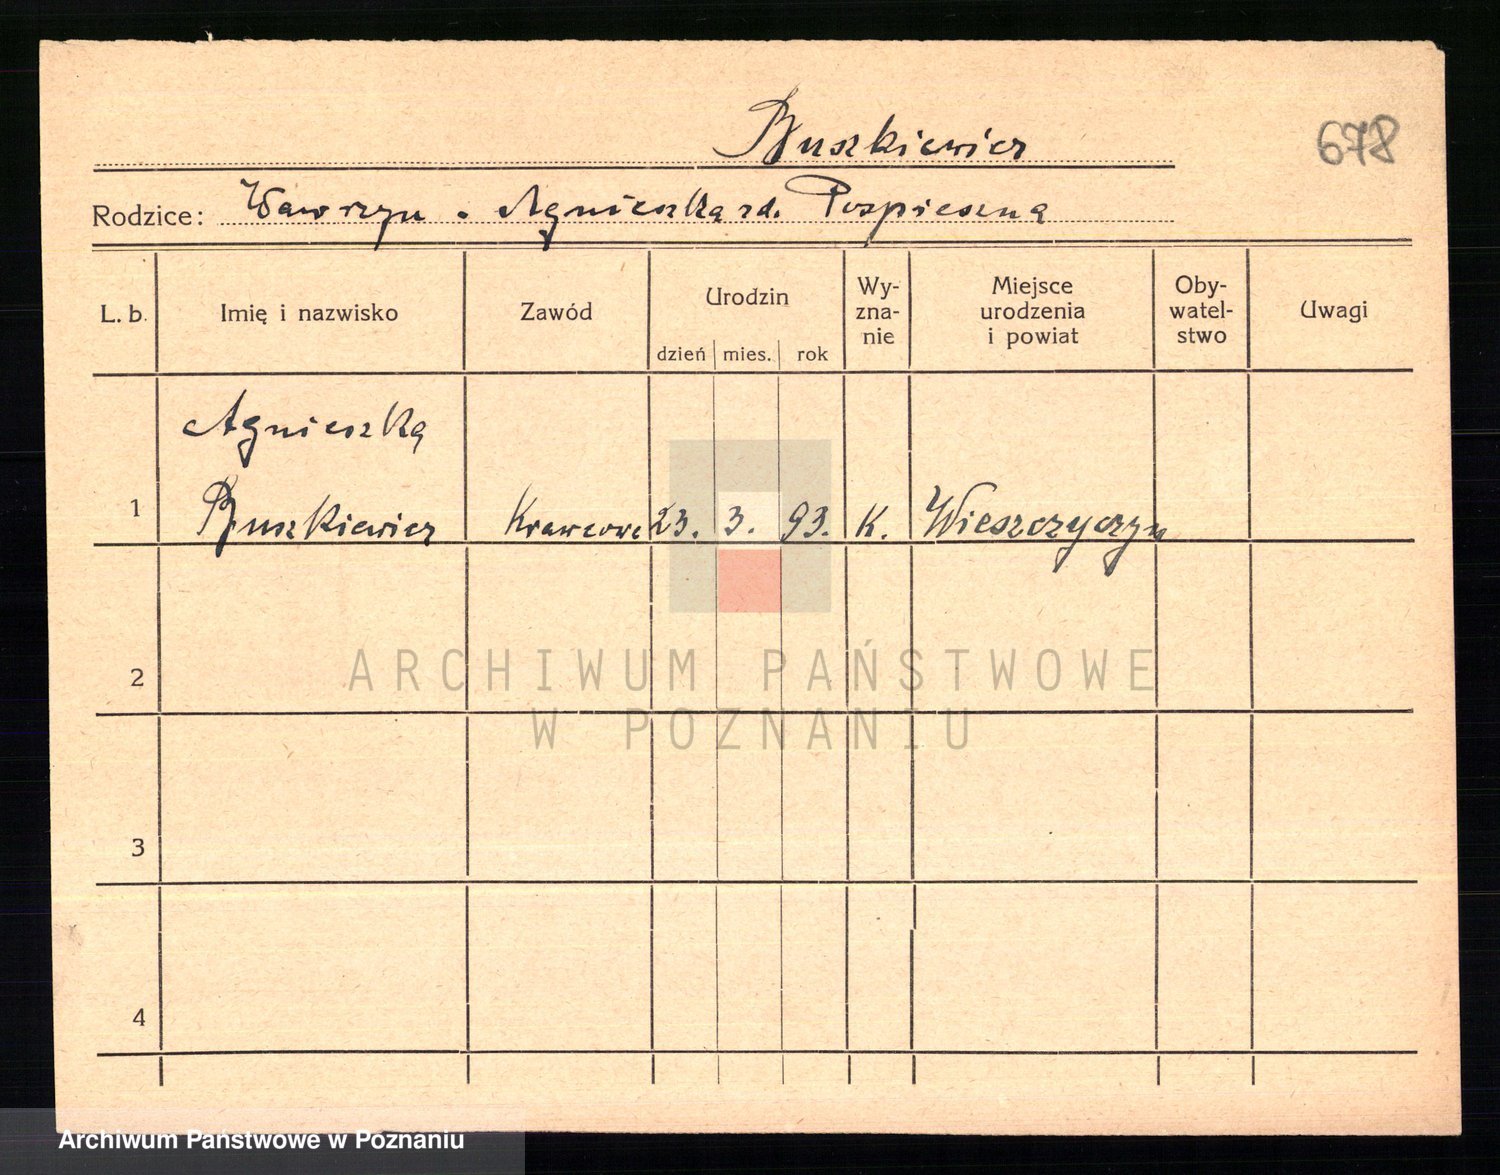 Buszkiewicz
678
Rodzice: Wawrzyn . Agnieszka zd. Pospieszna
L. b.
Imię i nazwisko
Zawód
Urodzin
dzień mies. rok
Wy-
zna-
nie
Miejsce
urodzenia
i powiat
Oby-
watel-
stwo
Uwagi
Agnieszka
1 Buszkiewicz Krawcowa 23. 3. 93. K. Wieszczyczyn
2
ARCHIWUM PAŃSTWOWE
W POZNANIU
3
4
Archiwum Państwowe w Poznaniu